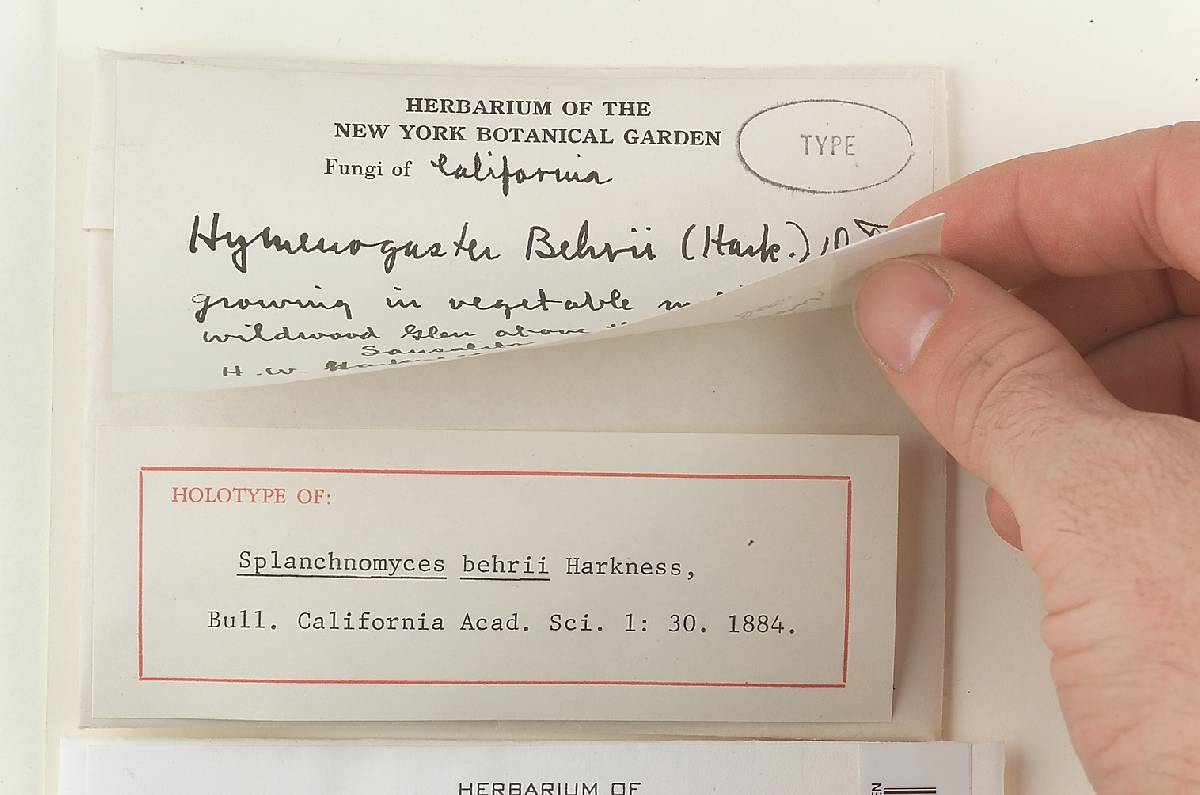 HERBARIUM OF THE
NEW YORK BOTANICAL GARDEN
TYPE
Fungi of California
Hymenogaster Behrii (Hark.)
growing in vegetable
wildwood Glen above
H. W.
HOLOTYPE OF:
Splanchnomyces behrii Harkness,
Bull. California Acad. Sci. 1: 30. 1884.
HERBARIUM OF